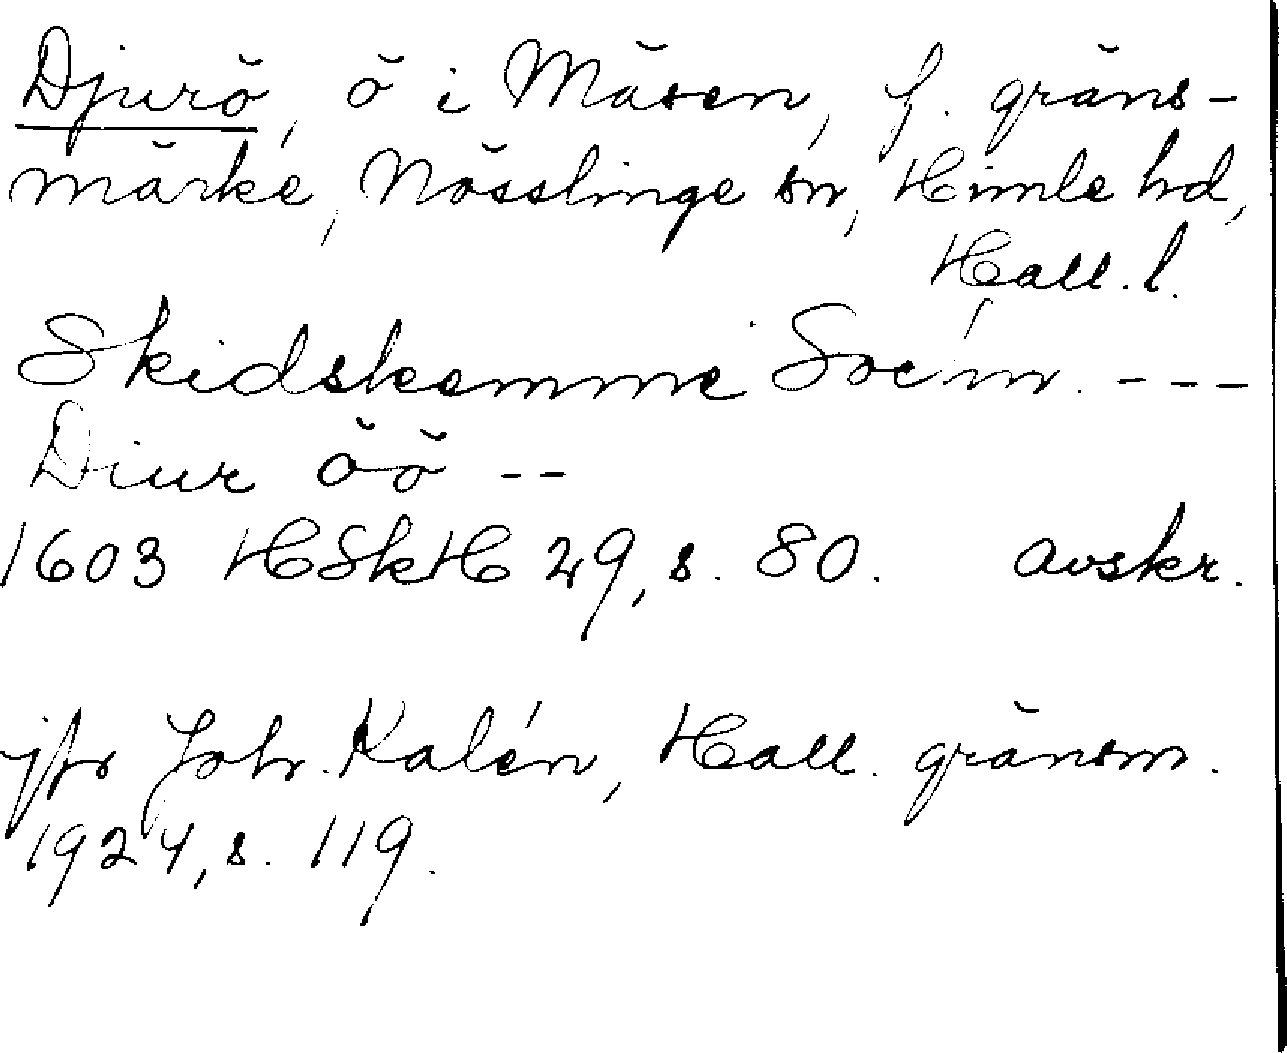 Djurö, ö i Mäsen, f. gräns-
märke, Nösslinge sn, Himle hd,
Hall. l.
Skidskemme Soe'm. ---
Diur öö --
1603 HSkH 29, s. 80. avskr.
jfr Joh. Kalén, Hall. gränsm.
1924, s. 119.